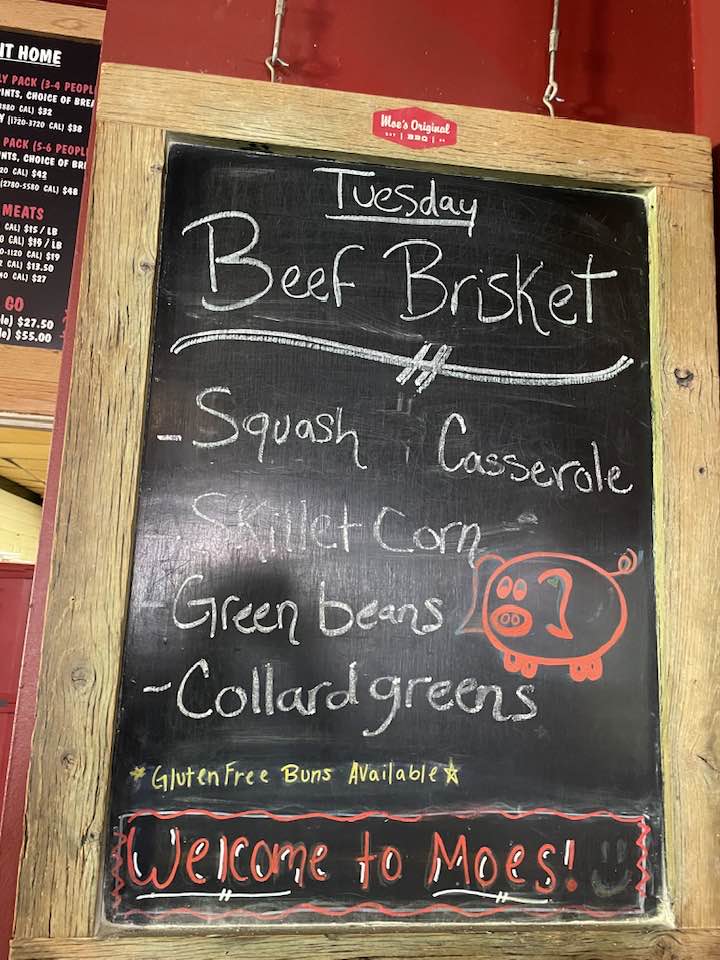 IT HOME
LY PACK (3-4 PEOPL
PINTS, CHOICE OF BREA
880 CAL) $32
Y (1720-3720 CAL) $38
PACK (5-6 PEOPL
NTS, CHOICE OF BRE
20 CAL) $42
(2780-5580 CAL) $48
MEATS
CAL) $15 / LB
0 CAL) $15 / LB
0-1120 CAL) $19
CAL) $13.50
40 CAL) $27
GO
le) $27.50
le) $55.00
Moe's Original
BBQ
Tuesday
Beef Brisket
- Squash Casserole
- Skillet Corn
- Green beans
- Collard greens
* Gluten Free Buns Available ☆
Welcome to Moes!